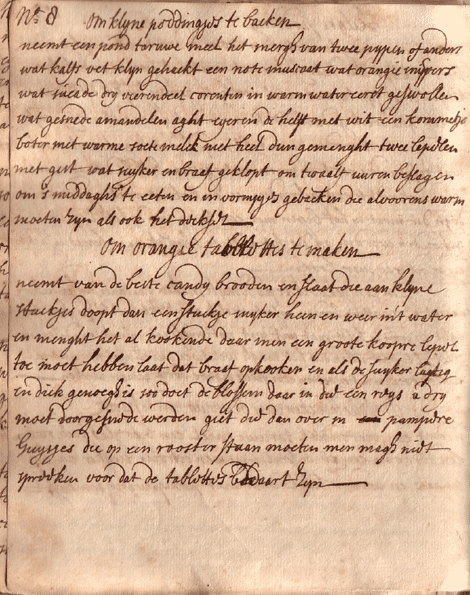 No 8 Om klyne poddingjes te backen
neemt een pond taruwe meel het mergh van twee pypen of anders
wat kalfs vet klyn gehackt een note muscaat wat orangie snippers
wat sucade dry vierendeel corenten in warm water eerst geswollen
wat gesnede amandelen aght eyeren de helft met wit een kommetje
boter met warme soete melck niet heel dun gemenght twee lepelen
met gist wat suyker en braef geklopt om twaalf uuren beslagen
om s middaghs te eeten en in vormpjes gebacken die alvoorens warm
moeten zyn als ook het deksel
Om orangie tablettes te maken
neemt van de beste candy brooden en slaat die aan klyne
stuckjes doopt dan een stuckje suyker heen en weer int water
en menght het al kookende daar men een groote koopre lepel
toe moet hebben laat dat braaf opkooken en als de suyker
en dick genoegh is soo doet de blossem daar in die een reys a dry
moet doorgesiede werden giet die dan over in pampiere
huysjes die op een rooster staan moeten men magh niet
spreeken voor dat de tablettes bedaart zyn